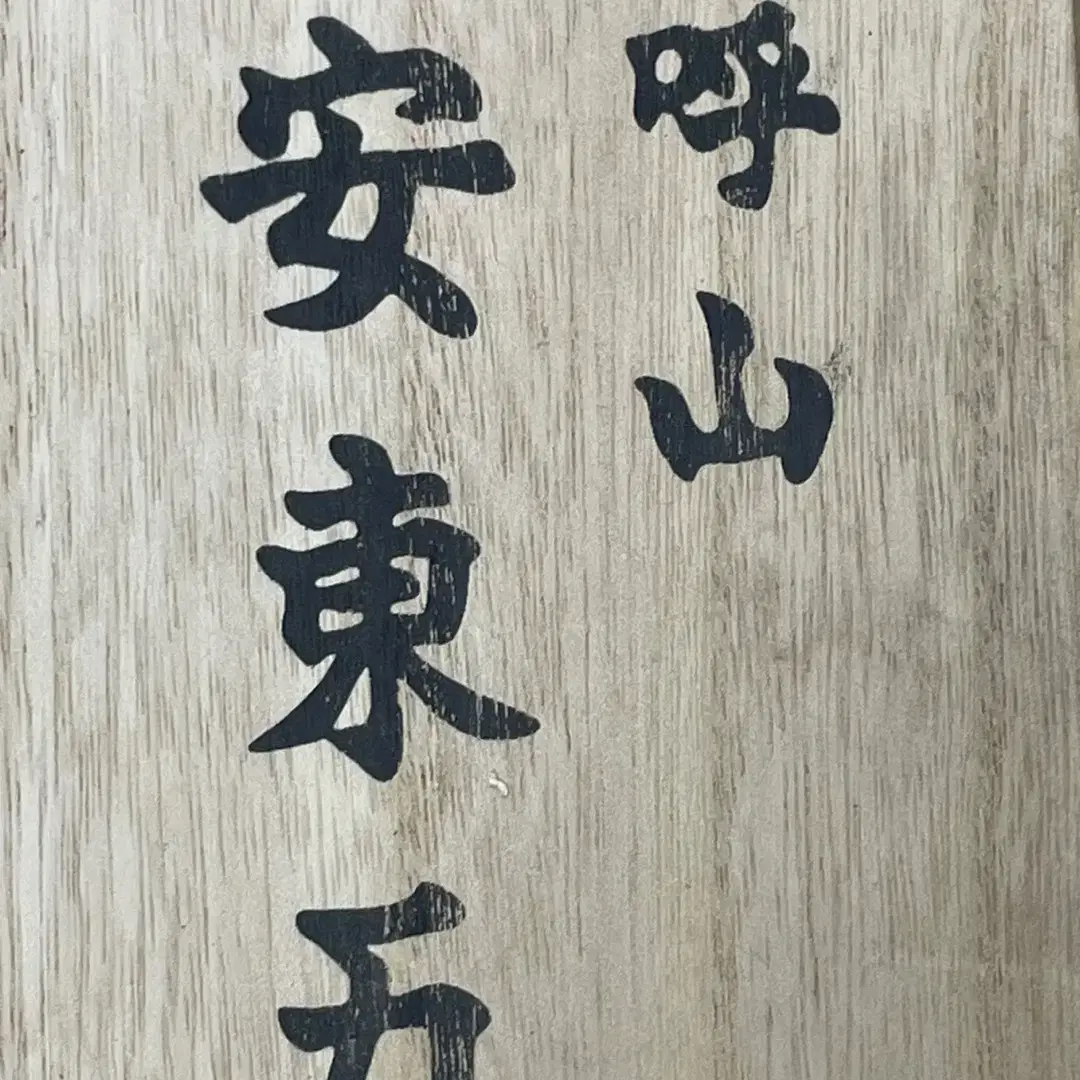 呼山
安東五